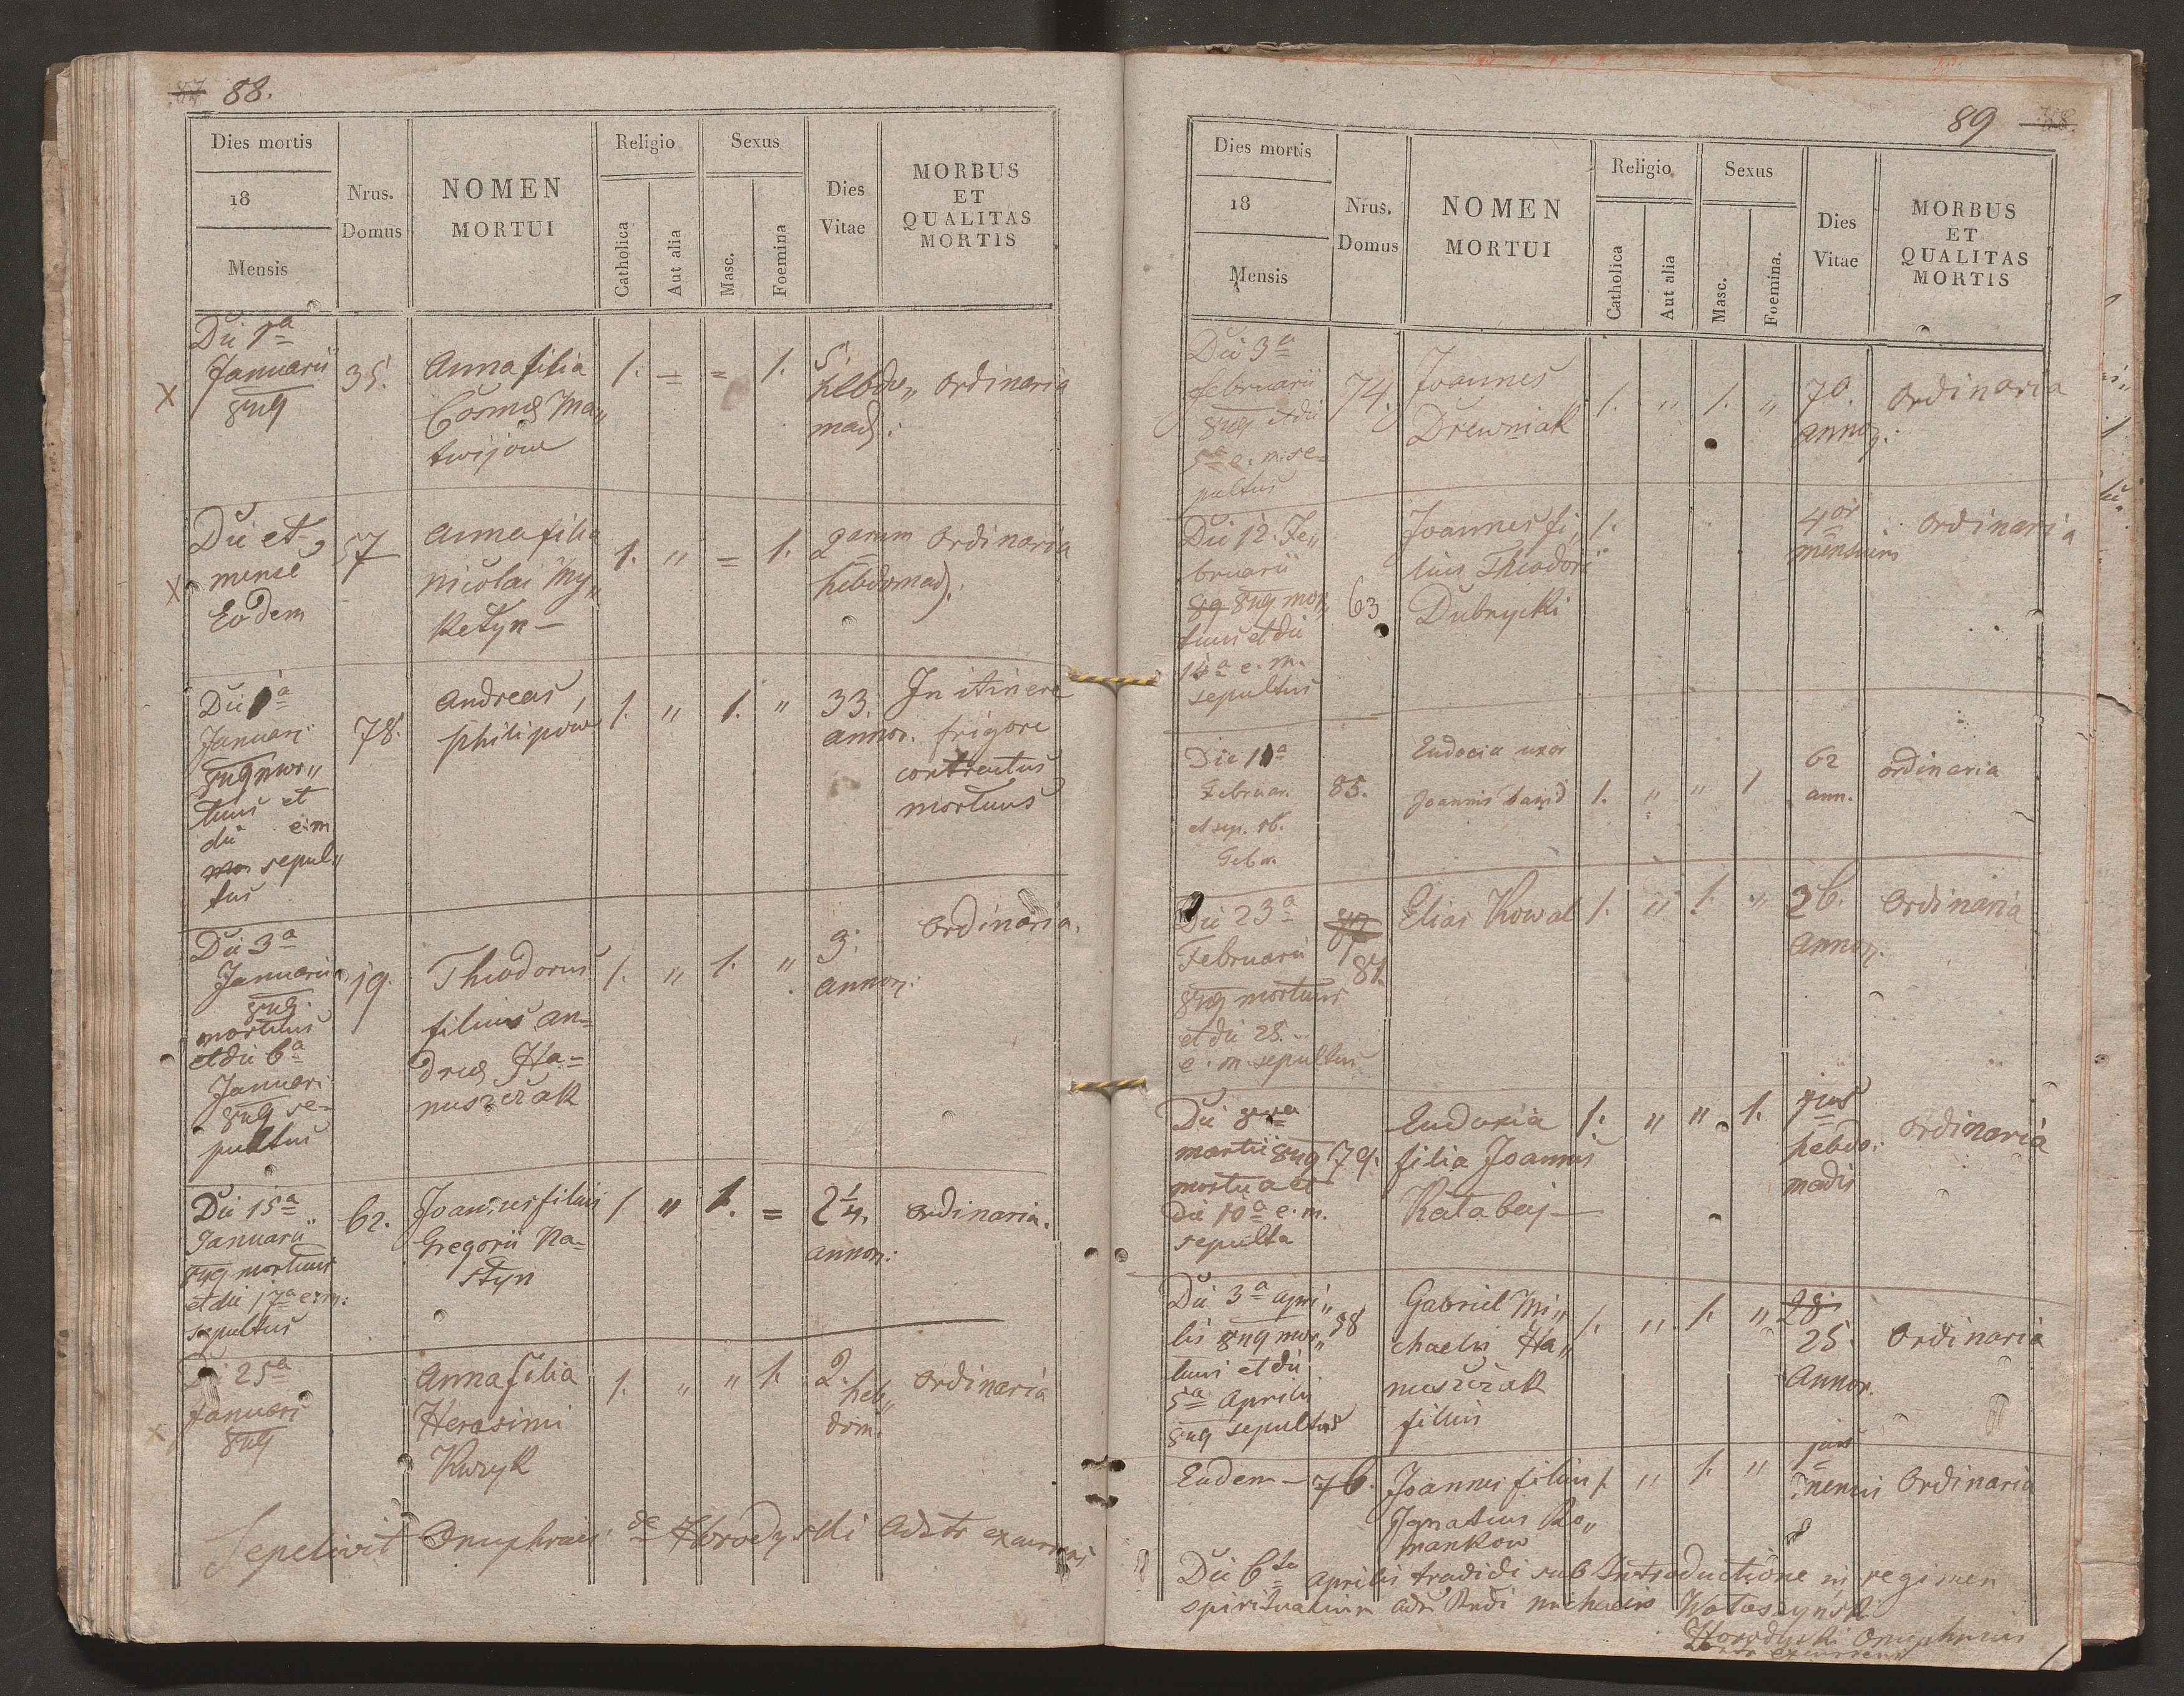 88.
Dies mortis
18
Mensis
Nrus.
Domus
NOMEN
MORTUI
Religio
Catholica
Aut alia
Sexus
Masc.
Foemina
Dies
Vitae
MORBUS
ET
QUALITAS
MORTIS
Die 1a
Januarii
849
35.
Anna filia
Cosmæ Ma„
twijow
1. – = 1.
5.
hebdo„
mad:
ordinaria
Die et
mense
Eodem
57
Anna filia
Nicolai My„
Ketyn –
1. „ = 1.
2arum
hebdomad.
ordinaria
Die 1a
Januarj
849 mor„
tuus et
die e:m
sepul„
tus
78.
Andreas
Philipow
1. „ 1. „
33.
annor.
In itinere
frigore
contractus
mortuus
Die 3a
Januarii
849.
mortuus
et die 6a
Januari
849 se-
pultus
19.
Theodorus
filius An=
dreæ Ha=
nuszczak
1. „ 1. „
3.
annor:
ordinaria.
Die 15a
Januarii
849 mortuus
et die 17a e:m:
sepultus
62.
Joannes filius
Gregorii Na=
styn
1 „ 1. =
2 1/4.
annor:
ordinaria.
Die 25a
Januari
849
Anna filia
Herasimi
Kuzyk
1. „ „ 1.
2.
heb„
dom.
ordinaria
Sepelivit Onuphrius de Horodyski Adstr excurrens
89
Dies mortis
18
Mensis
Nrus.
Domus
NOMEN
MORTUI
Religio
Catholica
Aut alia
Sexus
Masc.
Foemina.
Dies
Vitae
MORBUS
ET
QUALITAS
MORTIS
Die 3a
februarii
849 et die
5a e. m. se-
pultus
74.
Joannes
Drewniak
1. „ 1. „
70.
annor:
ordinaria
Die 12. Fe„
bruarii
89 849 mor„
tuus et die
e. m.
sepultus
63
Joannes fi„
lius Theodori
Dubrycki
1.
4or
mensium
ordinaria
Die 11a
Februar.
et sep. 16.
Febr.
85.
Eudocia uxor
Joannis Dawid
1. „ „ 1
62
ann.
ordinaria
Die 23a
Februarii
849 mortuus
et die 25.
e. m. sepultus
87.
Elias Kowal
1. „ 1. „
36.
Annor.
Ordinaria
Die 8va
martii 849
mortua et
die 10a e. m.
sepulta
79.
Eudoxia
filia Joannis
Katabaj –
1. „ „ 1.
hebdo:
madis
ordinaria
Die 3a apri„
lis 849 mor„
tuus et die
5a Aprilis
849 sepultus
88
Gabriel Mi„
chaelis Ha„
nuszczak
filius
1. „ 1. „
28.
25.
Annor.
Ordinaria
Eadem – 76.
Joannes filius
Ignatius Ro„
mankow
1. „ 1. „
mensis
Ordinaria
Die 6ta Aprilis tradidi sub Introductione in regimen
spiritualium Adm Rndi Michaelis Wołoszyński
Horodyski Onuphrius
Adstr excurrens